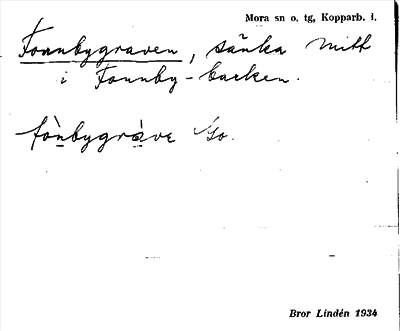 Mora sn o. tg, Kopparb. l.
Fonnbygraven, sänka mitt
i Fonnby-backen.
fònbygráve So.
Bror Lindén 1934